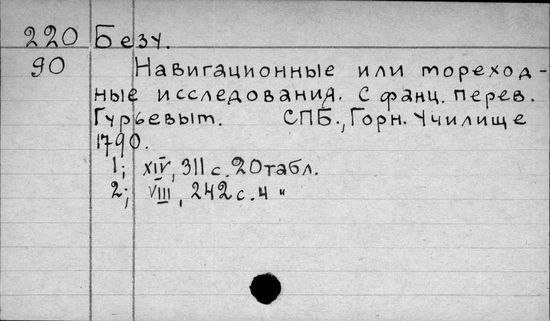 220 Безу.
90 Навигационные или тореход-
ные исследования. С фанц. перев.
Гурьевыт. СПБ., Горн. Училище
1790.
1; XIV, 311 с. 20 табл.
2; VIII, 242 с. 4 "